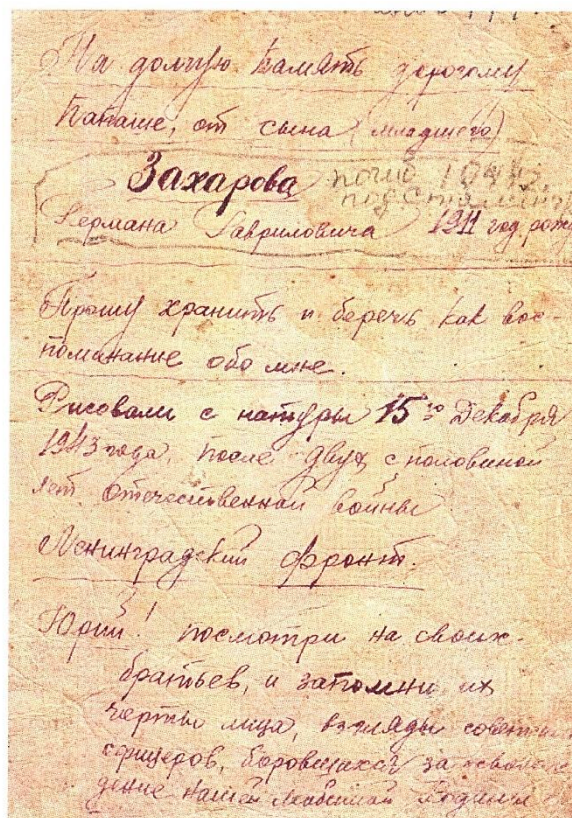 На долгую память дорогому
папаше, от сына (младшего)
Захарова погиб 1944г.
под
Германа Гавриловича 1911 год рожд
Прошу хранить и беречь как вос-
поминание обо мне.
Рисовали с натуры 15го Декабря
1943 года, после двух с половиной
лет Отечественной войны
Ленинградский фронт.
Юрий! посмотри на своих
братьев, и запомни их
черты лица, взгляды советских
офицеров, боровшихся за освобож
дение нашей любимой Родины